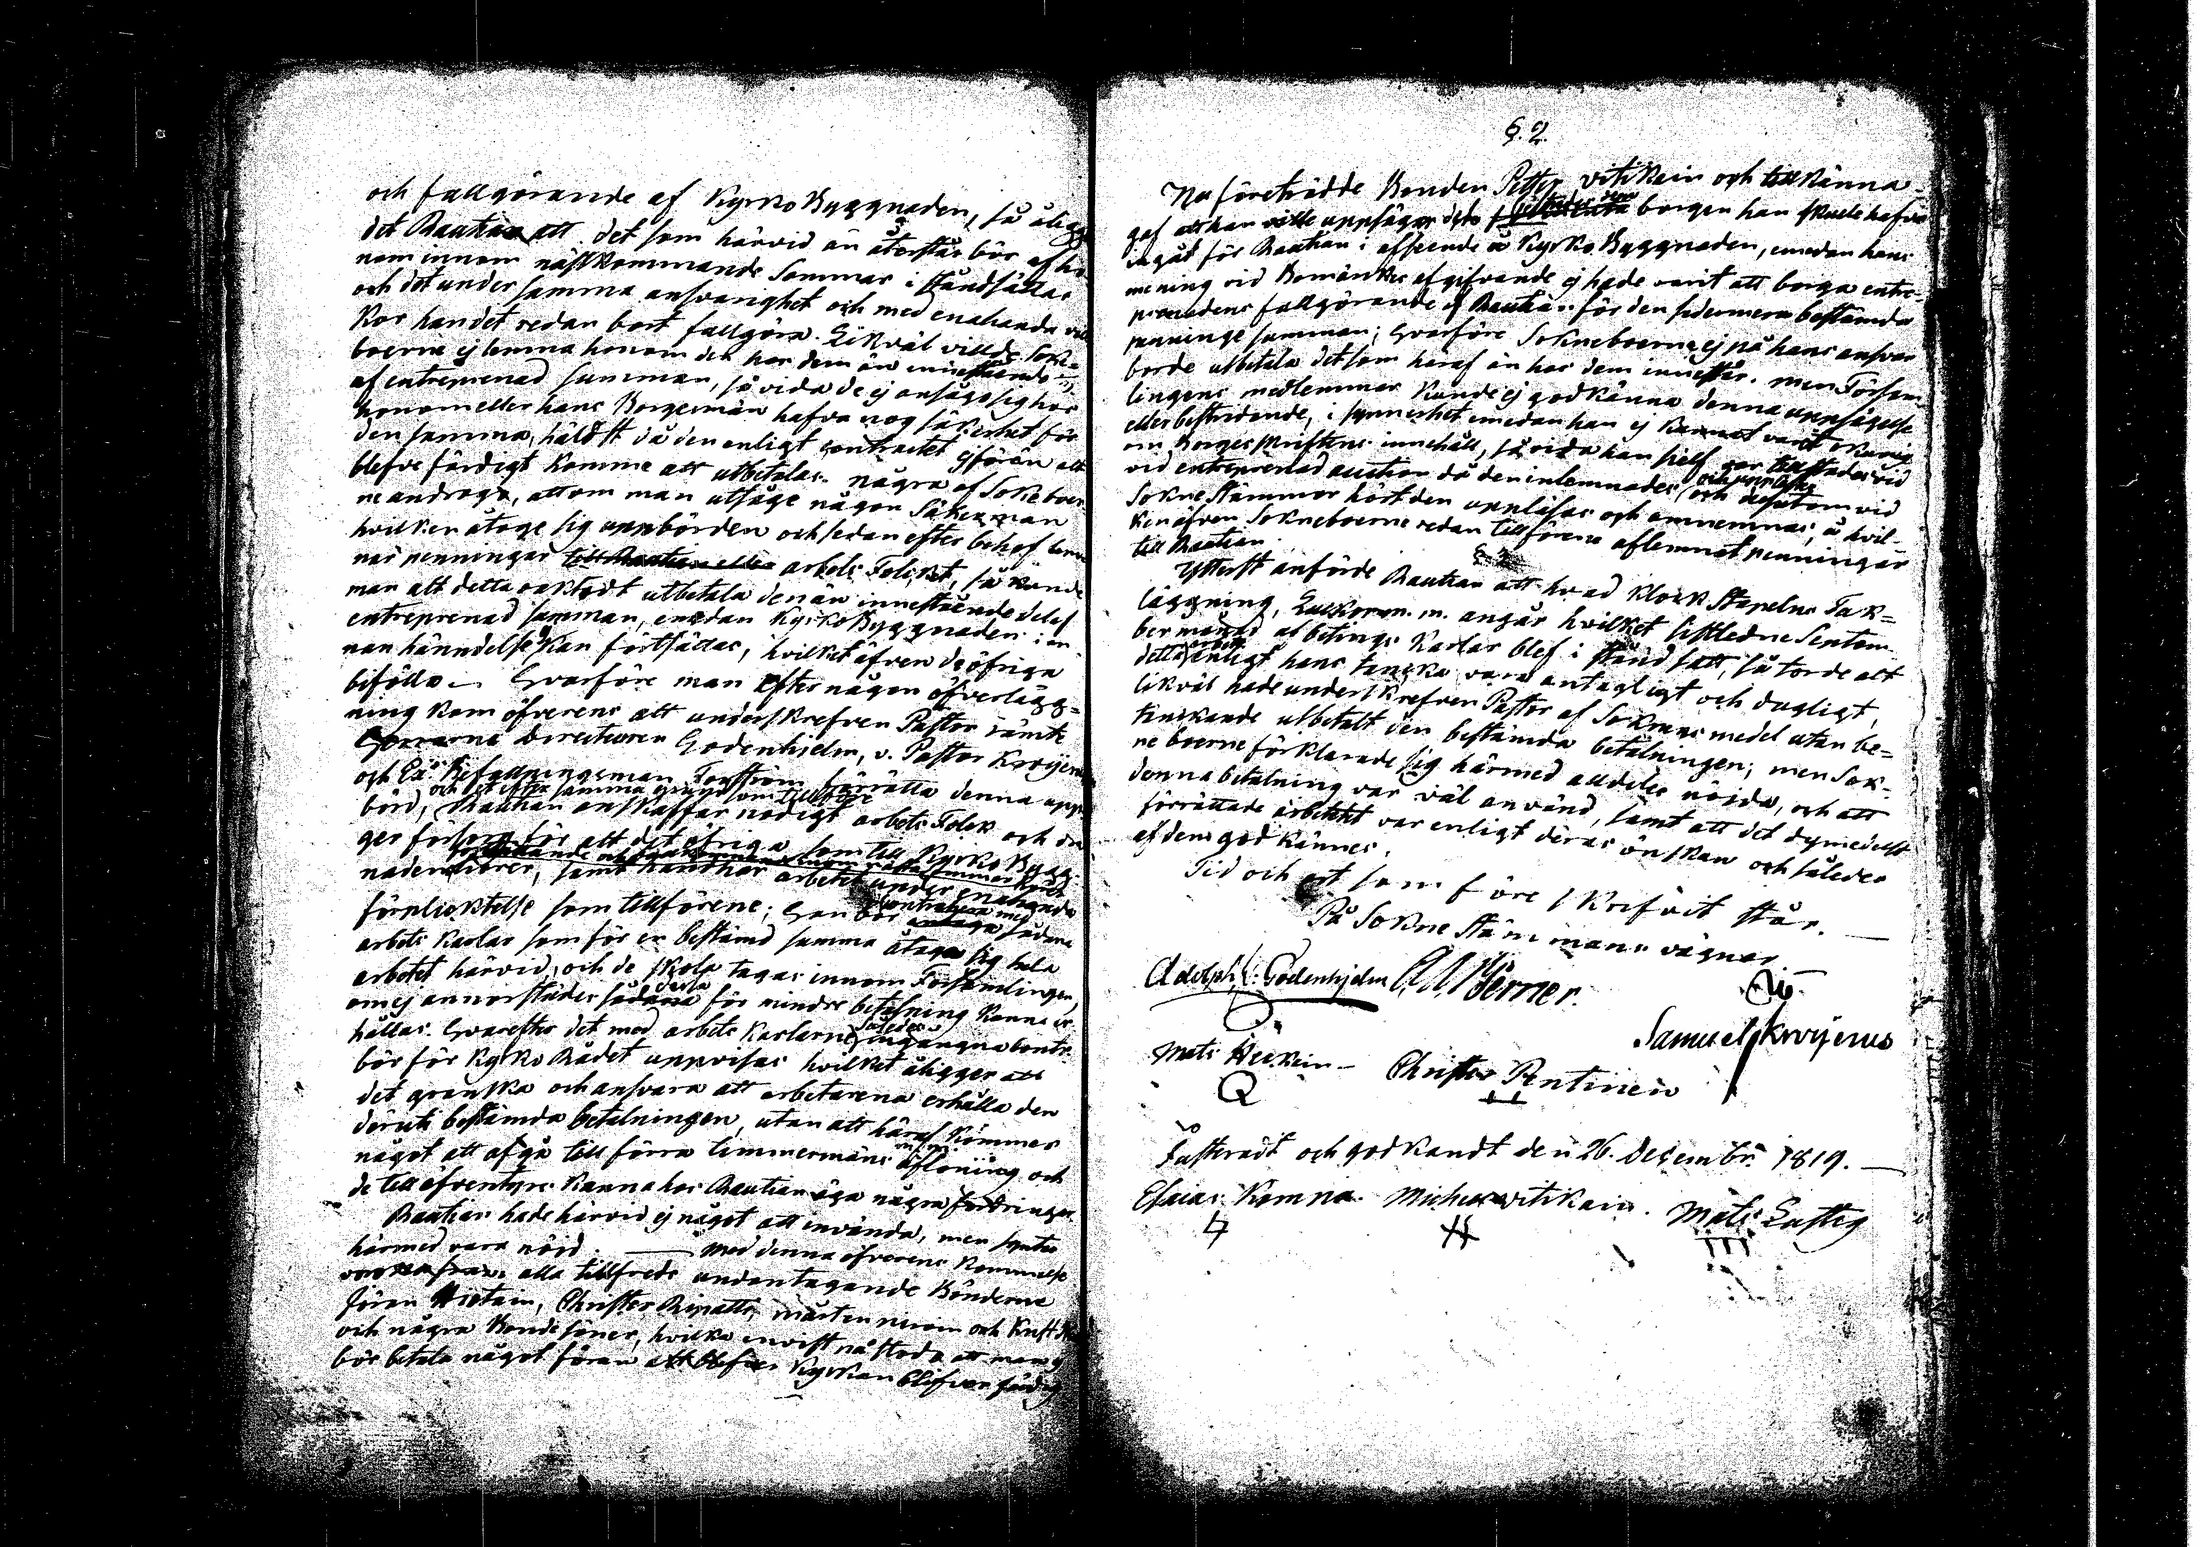 och fullgörande af Kyrko Byggnaden, så åligg
det Rautian att det som härvid än återstår bör af ho
nom innom nästkommande Sommar i ståndsättas
och det under samma ansvarighet och med enahanda
kor han det redan bort fullgöra. Likväl ville Sok-
boerna ej lemna honom det hos dem än innestående
af entreprenad summan, så vida de ej ansågo sig hos
honom eller hans Borgesmän hafva nog säkerhet för
den samma, hälst då den enligt contractet ej förän allt
blefve färdigt komme att utbetalas. några af Sokneboer
ne androgo, att om man utsåge någon Säker man
hvilken åtoge sig uppbörden och sedan efter behof
nar penningar till Rautian eller arbets Folcket, så kunde
man att detta oaktadt utbetala den än innestående del af
entreprenad summan, emedan Kyrko Byggnaden i an
nan händelse kan fortsättas, hvilket äfven de öfriga
biföllo. Hvarföre man efter någon öfverlägg=
ning kom öfverens att underskrefven Pastor jämte
Herrarne Directeuren Godenhjelm, v. Pastor Kroijerus
och Ex. Befallningsman Forsström förrätta denna upp
och det efter samma grund som tillförene
börd, Rautian anskaffar nödigt arbets Folck och dra
ger försorg för att det öfriga som till Kyrko Bygg-
naden hörer, samt handhar arbetet under enahanda
förpliktelse som tillförene; Han bör contrahera med sådana
arbets Karlar som för en bestämd summa åtaga sig hela
arbetet härvid, och de skola tagas innom Församlingen,
om ej annorstädes sådana för mindre betalning kunna er
hållas. Hvarefter det med arbets karlarne således ingångna contr.
bör för Kyrko Rådet uppvisas hvilket åligger att
det granska och ansvara att arbetarena erhålla den
deruti bestämda betalningen, utan att häraf kommer
något att afgå till förra timmermäns aflöning och
de till äfventyrs kunna hos Rautian äga några fordringar
Rautian hade härvid ej något att invända, men syntes
härmed vara nöjd. — Med denna öfverens kommelse
voro alla tillfreds undantagande Bönderne
Jöran Hietain, Christer Ripatti, mårten niroin och
och några Bonde söner, hvilka envist påstodo att man ej
bör betala något förän Kyrkan blifver färdig
§. 2.
Nu företrädde Bonden Petter Vitikain och tillkänna-
gaf att han ville uppsäga den borgen han skulle hafva
ingåt för Rautian i afseende å Kyrko Byggnaden, emedan hans
mening vid Bomärkes afgifvande ej hade varit att borga entre-
prenadens fullgörande af Rautian för den sedermera bestämda
penninge summan; Hvarföre Sokneboerne ej på hans ansvar
borde utbetala det som häraf än hos dem innestår. men Försam-
lingens medlemmar kunde ej godkänna denna uppsägelse
eller bestridande, i synnerhet emedan han ej kunnat varit okunnig
om Borges skriftens innehåll, så vida han sjelf var tillstädes vid
vid entreprenad auction då den inlemnades och upplästes och dessutom vid
Sokne Stämmor hört den uppläsas och omnemnas, å hvil-
ken äfven Sokneboerne redan tillförene aflemnat penningar
till Rautian.
§. 3.
Ytterst anförde Rautian att hvad Klock Stapelns Tak=
läggning, Luckor m. m. angår hvilket sistledne Septem
ber månad af betings Karlar blef i stånd satt, så torde allt
detta arbete enligt hans tancka vara antagligt och dugligt,
likväl hade underskrefven Pastor af Soknens medel utan be=
tänkande utbetalt den bestämda betalningen; men Sok-
ne boerne förklarade sig härmed alldeles nöjda, och att
denna betalning var väl använd, samt att det dymedelst
förrättade arbetet var enligt deras önskan och således
af dem godkännes.
Tid och ort som före skrifvit står.
På Sokne Stämmans vägnar
Adolph L: Godenhjelm Werner.
Samuel Kroijerus
Mats Heiskain Christer Pentinen
Justeradt och godkändt den 26. December 1819.
Esaias Komna. Michel Vitikain. Mats Lustig